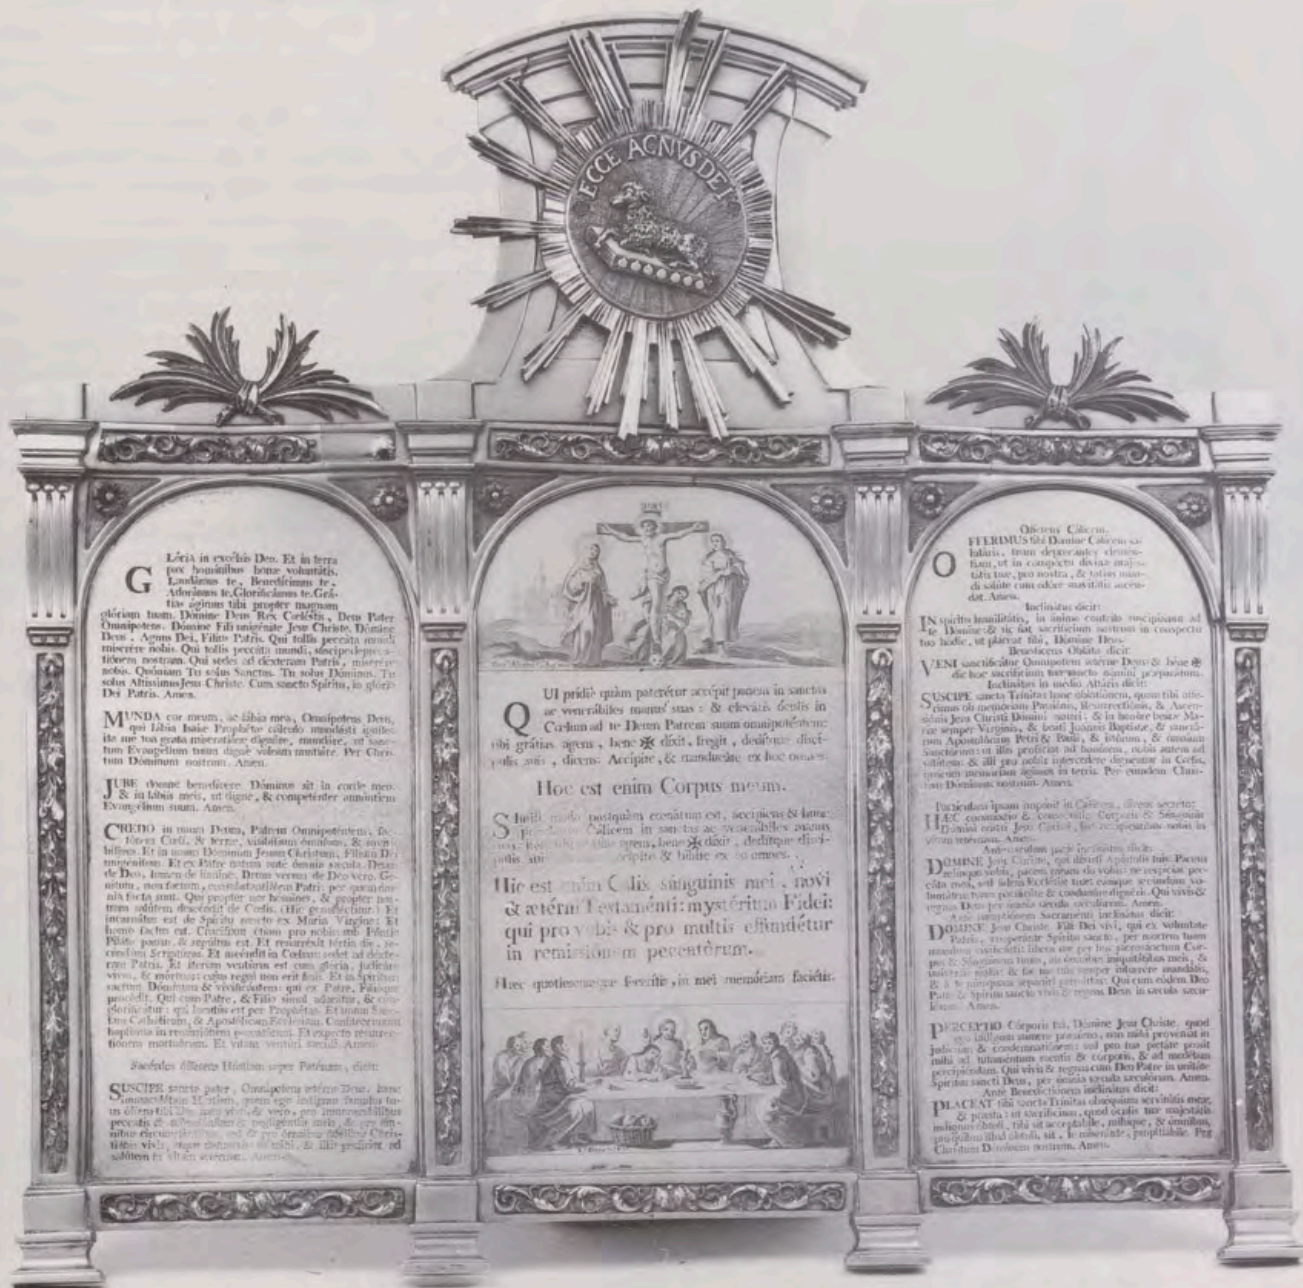 ECCE AGNVS DEI
GLória in excélsis Deo. Et in terra
pax homínibus bonæ voluntátis.
Laudámus te, Benedícimus te,
Adorámus te, Glorificámus te. Grá-
tias ágimus tibi propter magnam
glóriam tuam. Dómine Deus Rex Cœléstis, Deus Pater
Omnípotens. Dómine Fili unigénite Jesu Christe. Dómine
Deus, Agnus Dei, Filius Patris. Qui tollis peccáta mundi
miserére nobis. Qui tollis peccáta mundi, súscipe depreca-
tiónem nostram. Qui sedes ad déxteram Patris, miserére
nobis. Quóniam Tu solus Sanctus. Tu solus Dóminus. Tu
solus Altíssimus Jesu Christe. Cum sancto Spíritu, in glória
Dei Patris. Amen.
MUNDA cor meum, ac lábia mea, Omnípotens Deus,
qui lábia Isaiæ Prophétæ cálculo mundásti igníto:
ita me tua grata miseratióne dignáre, mundáre, ut sanc-
tum Evangélium tuum dignè váleam nuntiáre. Per Chris-
tum Dóminum nostrum. Amen.
JUBE domne benedícere Dóminus sit in corde meo
& in lábiis meis, ut dignè, & competénter annúntiem
Evangélium suum. Amen.
CREDO in unum Deum, Patrem Omnipoténtem, fac-
tórem Cœli, & terræ, visibílium ómnium, & invisi-
bílium. Et in unum Dóminum Jesum Christum, Fílium Dei
unigénitum. Et ex Patre natum ante ómnia sæcula. Deum
de Deo, lumen de lúmine, Deum verum de Deo vero. Gé-
nitum, non factum, consubstantiálem Patri: per quem óm-
nia facta sunt. Qui propter nos hómines, & propter nos-
tram salútem descéndit de Cœlis. (Hic genuflectitur.) Et
incarnátus est de Spíritu sancto ex María Virgine: Et
homo factus est. Crucifíxus étiam pro nobis sub Póntio
Piláto passus, & sepúltus est. Et resurréxit tértia die, se-
cúndum Scriptúras. Et ascéndit in Cœlum: sedet ad déxte-
ram Patris. Et íterum ventúrus est cum glória, judicáre
vivos, & mórtuos: cujus regni non erit finis. Et in Spíritum
sanctum Dóminum & vivificántem: qui ex Patre, Filióque
procédit. Qui cum Patre, & Fílio simul adorátur, & con-
glorificátur: qui locútus est per Prophétas. Et unam Sanc-
tam Cathólicam, & Apostólicam Ecclésiam. Confíteor unum
baptísma in remissiónem peccatórum. Et expécto resurrec-
tiónem mortuórum. Et vitam ventúri sæculi. Amen.
Sacérdos ófferens Hóstiam super Paténam, dicit:
SUSCIPE sancte pater, Omnípotens ætérne Deus, hanc
immaculátam Hóstiam, quam ego indígnus fámulus tu-
us óffero tibi Deo meo vivo, & vero, pro innumerabílibus
peccátis & offensiónibus & negligéntiis meis, & pro óm-
nibus circumstántibus, sed & pro ómnibus fidélibus Chris-
tiánis vivis, atque defúnctis: ut mihi, & illis profíciat ad
salútem in vitam ætérnam. Amen.
QUI prídiè quàm paterétur accépit panem in sanctas
ac venerábiles manus suas: & elevátis óculis in
Cœlum ad te Deum Patrem suum omnipoténtem:
tibi grátias agens, bene ✠ dixit, fregit, dedítque discí-
pulis suis, dicens: Accípite, & manducáte ex hoc omnes.
Hoc est enim Corpus meum.
SImili modo postquàm cœnátum est, accípiens & hunc
Cálicem in sanctas ac venerábiles manus
agens, bene ✠ dixit, dedítque discí-
pulis accípite & bíbite ex eo omnes.
Hic est enim Calix sánguinis mei, novi
& ætérni Testaménti: mystérium Fídei:
qui pro vobis & pro multis effundétur
in remissiónem peccatórum.
Hæc quotiescúmque fecéritis, in meî memóriam faciétis.
Offerens Cálicem.
OFFERIMUS tibi Dómine Cálicem sa-
lutáris, tuam deprecántes clemén-
tiam, ut in conspéctu divínæ majes-
tátis tuæ, pro nostra, & totíus mun-
di salúte cum odóre suavitátis ascén-
dat. Amen.
Inclinátus dicit:
IN spíritu humilitátis, in ánimo contríto suscipiámur ad
te Dómine: & sic fiat sacrifícium nostrum in conspéctu
tuo hódie, ut pláceat tibi, Dómine Deus.
Benedícens Obláta dicit:
VENI sanctificátor Omnípotens ætérne Deus & béne ✠
dic hoc sacrifícium tuo sancto nómini præparátum.
Inclinátus in médio Altáris dicit:
SUSCIPE sancta Trínitas hanc oblatiónem, quam tibi offé-
rimus ob memóriam Passiónis, Resurrectiónis, & Ascen-
siónis Jesu Christi Dómini nostri: & in honóre beátæ Ma-
ríæ semper Vírginis, & beáti Joánnis Baptístæ, & sanctó-
rum Apostolórum Petri & Pauli, & istórum, & ómnium
Sanctórum: ut illis profíciat ad honórem, nobis autem ad
salútem: & illi pro nobis intercédere dignéntur in Cœlis,
quorum memóriam ágimus in terris. Per eúmdem Chris-
tum Dóminum nostrum. Amen.
Partículam ipsam impónit in Cálicem, dicens secréto:
HÆC commíxtio & consecrátio Córporis & Sánguinis
Dómini nostri Jesu Christi, fiat accipiéntibus nobis in
vitam ætérnam. Amen.
DOMINE Jesu Christe, qui dixísti Apóstolis tuis: Pacem
relínquo vobis, pacem meam do vobis: ne respícias pec-
cáta mea, sed fidem Ecclésiæ tuæ: eámque secúndum vo-
luntátem tuam pacificáre & coadunáre dignéris. Qui vivis &
regnas Deus per ómnia sæcula sæculórum. Amen.
Ante sumptiónem Sacraménti inclinátus dicit:
DOMINE Jesu Christe, Fili Dei vivi, qui ex voluntáte
Patris, cooperánte Spíritu sancto, per mortem tuam
mundum vivificásti: líbera me per hoc sacrosánctum Cor-
pus & Sánguinem tuum, ab ómnibus iniquitátibus meis, &
univérsis malis: & fac me tuis semper inhærére mandátis,
& à te nunquam separári permíttas: Qui cum eódem Deo
Patre & Spíritu sancto vivis & regnas Deus in sæcula sæcu-
lórum. Amen.
PERCEPTIO Córporis tui, Dómine Jesu Christe, quod
ego indígnus súmere præsúmo, non mihi provéniat in
judícium & condemnatiónem: sed pro tua pietáte prosit
mihi ad tutaméntum mentis & córporis, & ad medélam
percipiéndam. Qui vivis & regnas cum Deo Patre in unitáte
Spíritus sancti Deus, per ómnia sæcula sæculórum. Amen.
Ante Benedictiónem inclinátus dicit:
PLACEAT tibi sancta Trínitas obséquium servitútis meæ,
& præsta: ut sacrifícium, quod óculis tuæ majestátis
indígnus óbtuli, tibi sit acceptábile, mihíque, & ómnibus,
pro quibus illud óbtuli, sit, te miseránte, propitiábile. Per
Christum Dóminum nostrum. Amen.